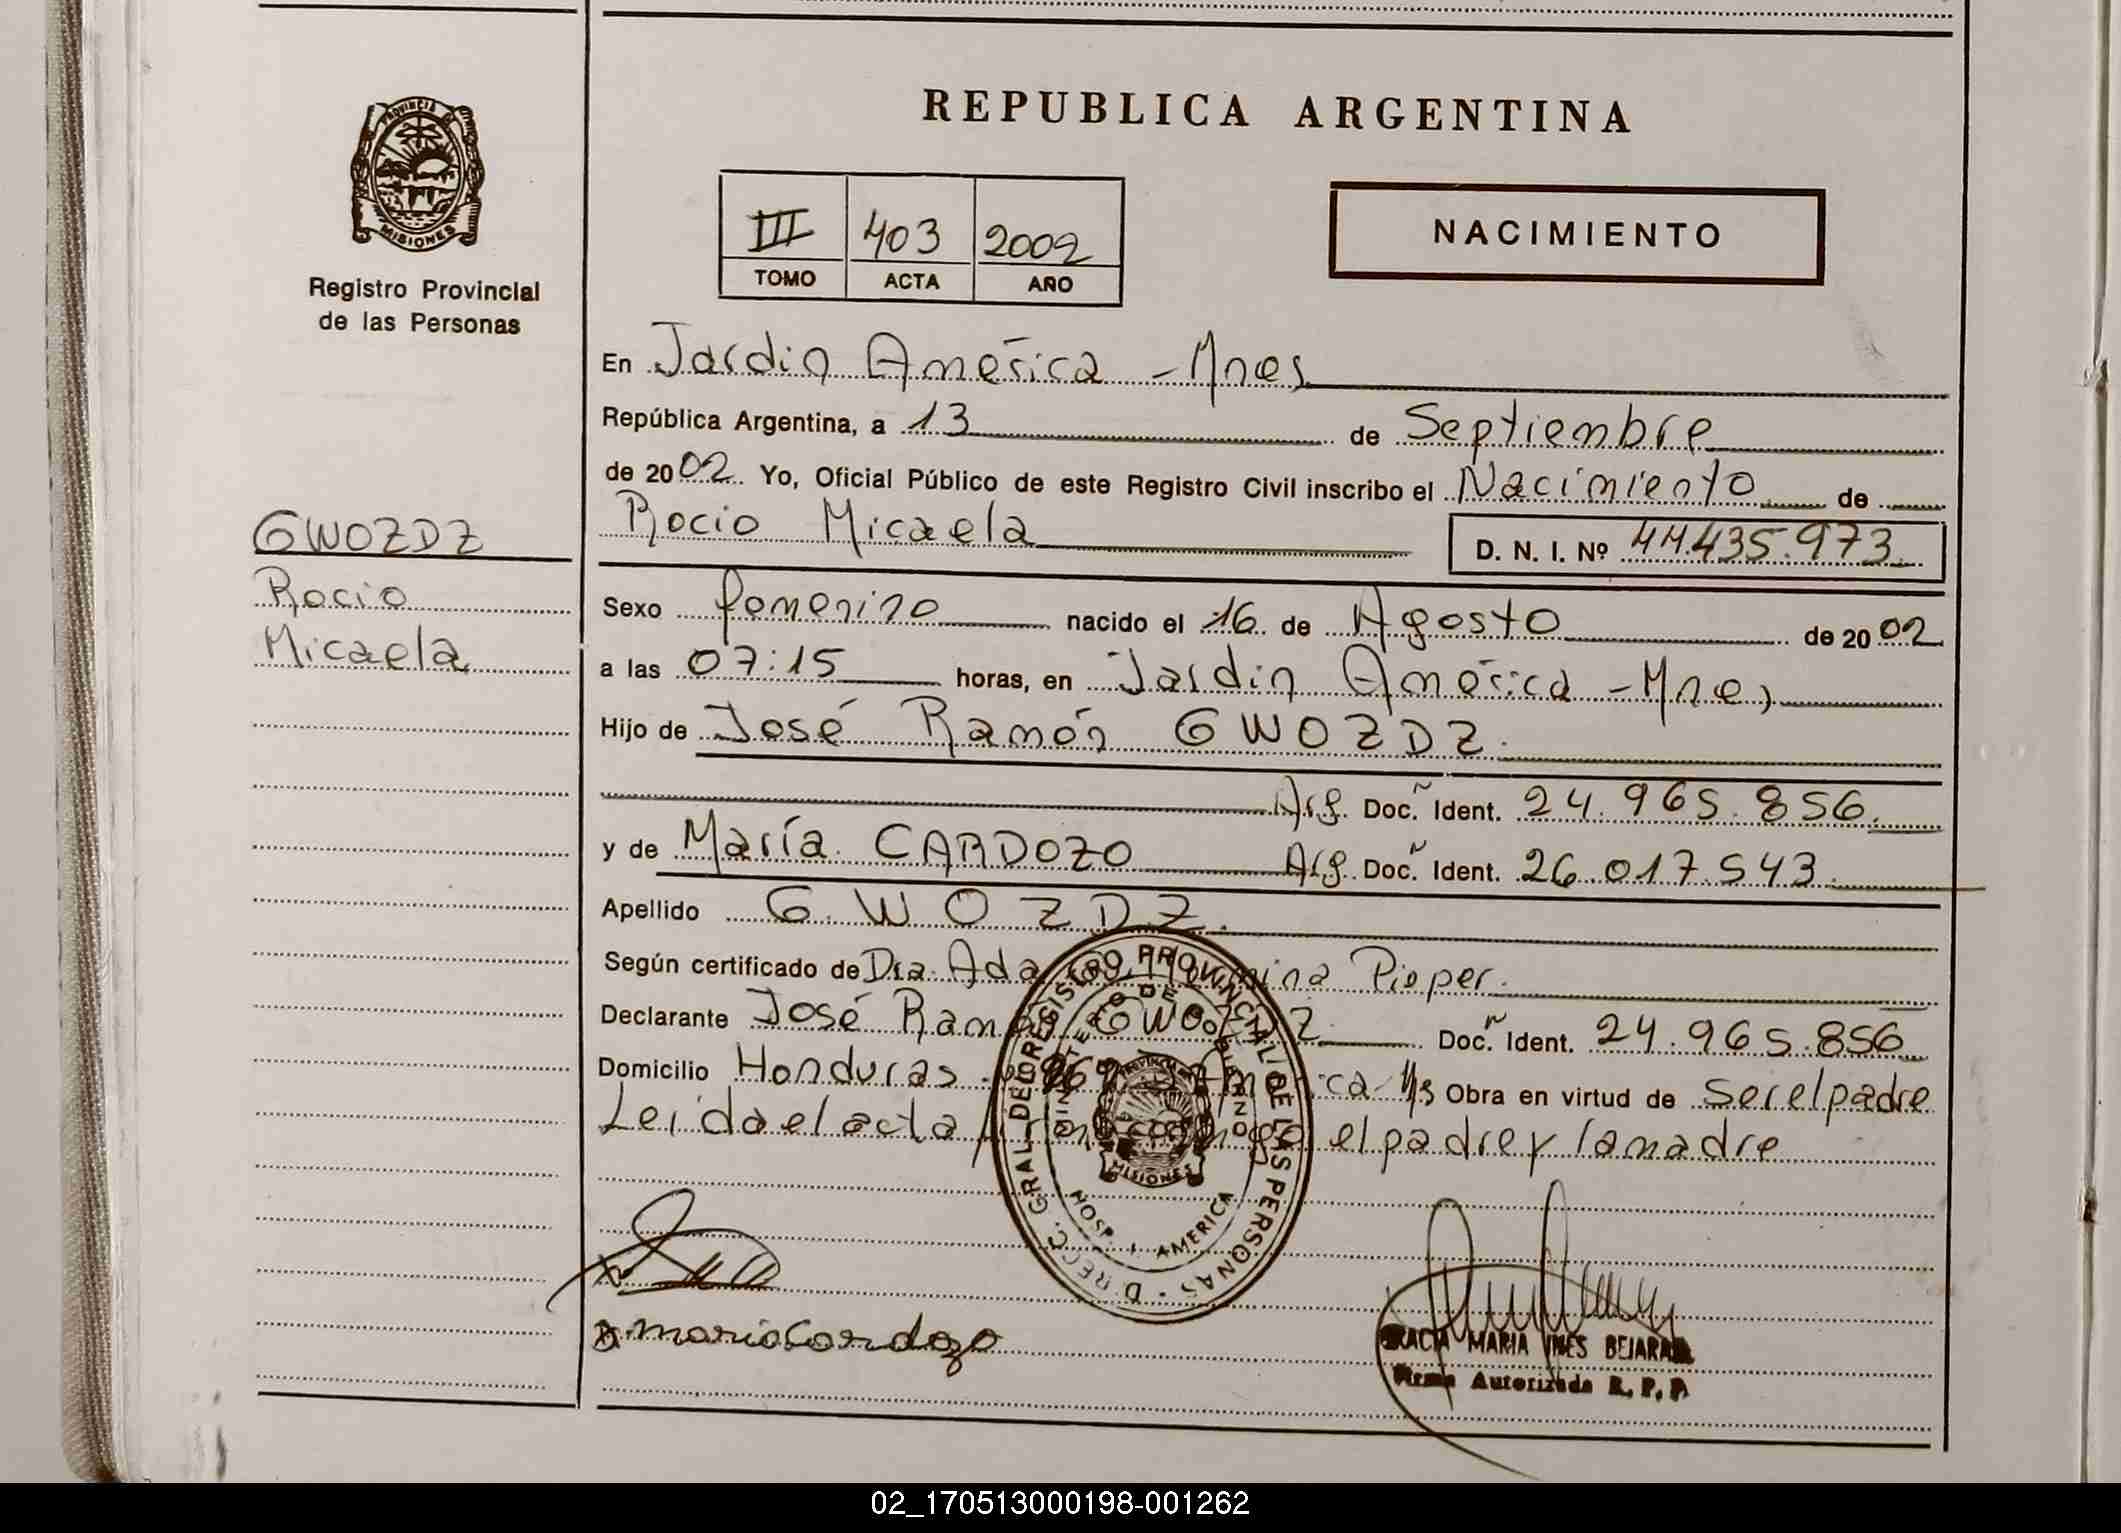 PROVINCIA DE
MISIONES
Registro Provincial
de las Personas
GWOZDZ
Rocio
Micaela
REPUBLICA ARGENTINA
III 403 2002
TOMO ACTA AÑO
NACIMIENTO
En Jardin América - Mnes
República Argentina, a 13 de Septiembre
de 2002 Yo, Oficial Público de este Registro Civil inscribo el Nacimiento de
Rocio Micaela D. N. I. Nº 44.435.973.
Sexo femenino nacido el 16 de Agosto de 2002
a las 07:15 horas, en Jardin América - Mnes
Hijo de José Ramón GWOZDZ
Arg. Doc. Ident. 24.965.856.
y de María CARDOZO Arg. Doc. Ident. 26.017.543.
Apellido GWOZDZ.
Según certificado de Dra. Ada Pieper.
Declarante José Ramón GWOZDZ Doc. Ident. 24.965.856
Domicilio Honduras Obra en virtud de ser el padre
Leida el acta el padre y la madre
DIRECC. GRAL. DEL REGISTRO PROVINCIAL DE LAS PERSONAS
MINISTERIO DE GOBIERNO
PROVINCIA DE
MISIONES
HOSP. J. AMERICA
maria Cardozo
GRACIA MARIA INES BEJARANO
Firma Autorizada R. P. P.
02_170513000198-001262